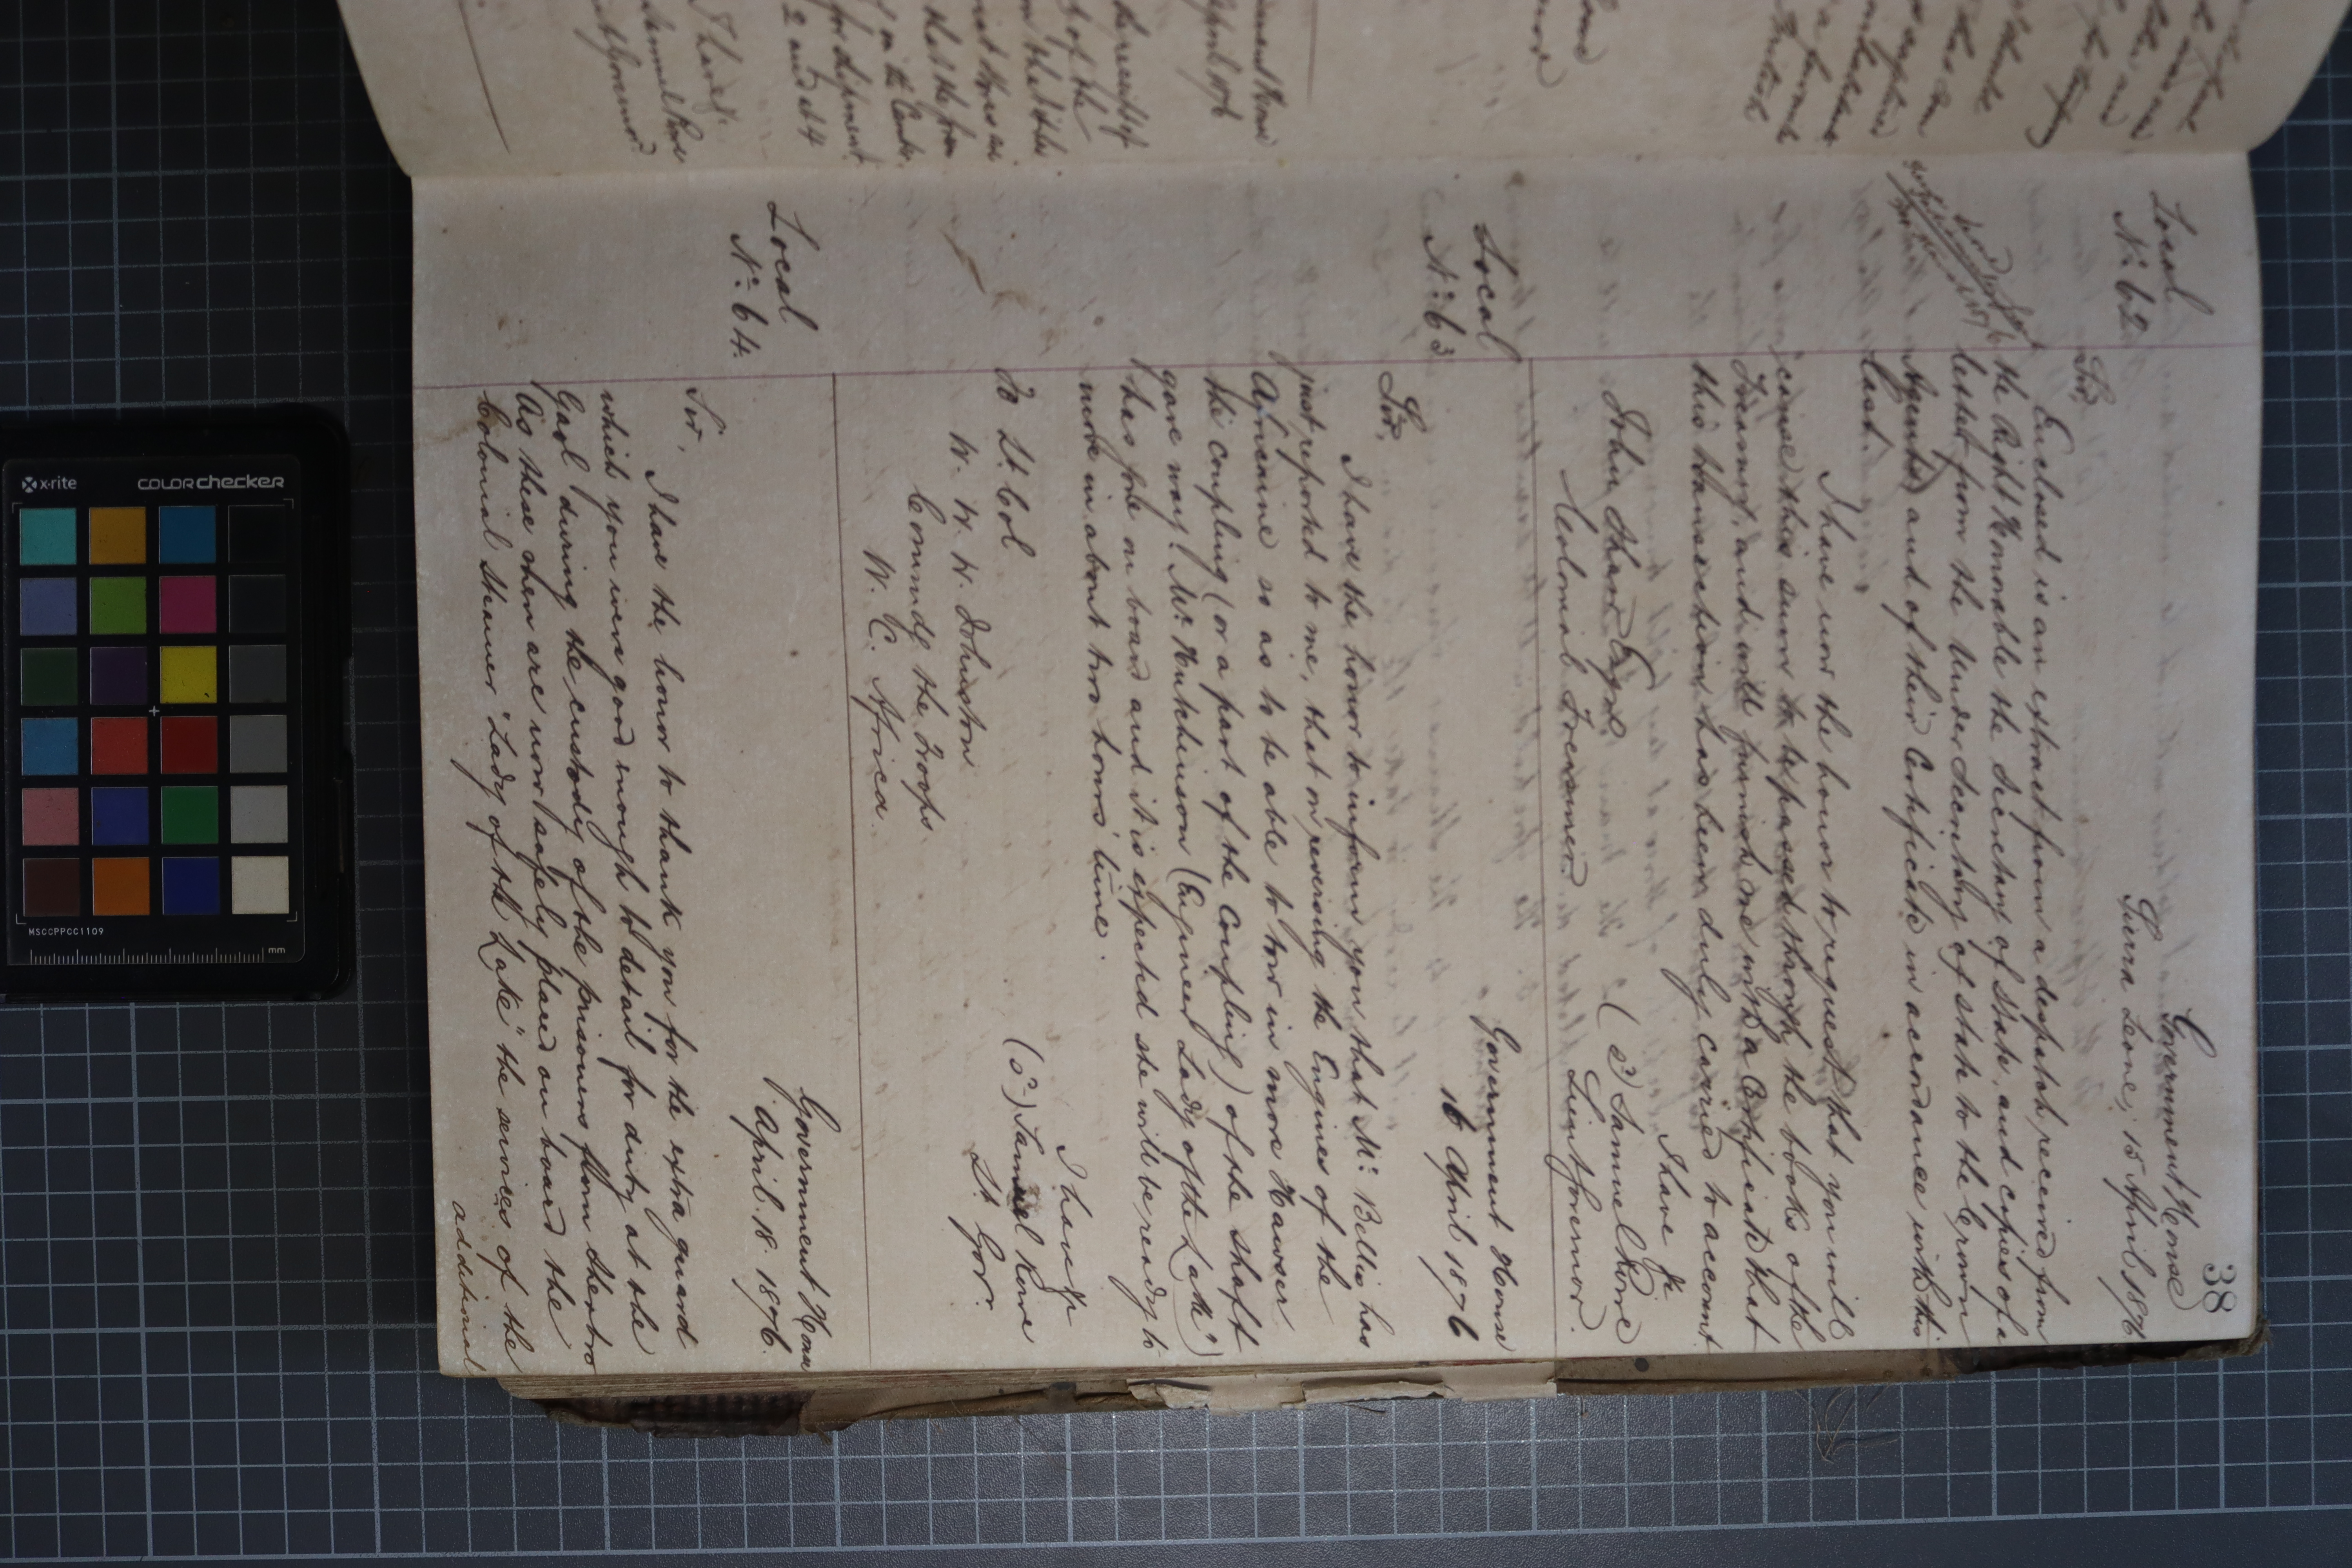 38
Local
No. 62
Government House
Sierra Leone, 15 April 1876
Sir,
Enclosed is an extract from a despatch received from
the Right Honorable the Secretary of State, and copies of a
letter from the Under Secretary of State to the Crown
Agents and of their Certificate in accordance with this
last.
I have now the honor to request that you will
cause this sum to be passed through the books of the
Treasury, and will furnish me with a Certificate that
this transaction has been duly carried to account
I have &c
(sd) Samuel Rowe
Lieut Governor.
John Shaw Esqre
Colonial Treasurer
Local
No. 63
Government House
16 April 1876
Sir,
I have the honor to inform you that Mr. Bellis has
just reported to me, that on reversing the Engines of the
Ajmenine so as to be able to tow in more Hawser
the coupling (or a part of the Coupling) of the shaft
gave way. Mr. Hutchinson (Engineer Lady of the Lake)
has gone on board and it is expected she will be ready to
move in about two hours' time.
I have &c
(Sd) Samuel Rowe
Lt. Gov.
To Lt. Col
W. W. W. Johnston
Commdg the Troops
W. C. Africa
Local
No. 64.
Government House
April. 18. 1876.
Sir,
I have the honor to thank you for the extra guard
which you were good enough to detail for duty at the
Gaol during the custody of the prisoners from Sherbro
As these men are now safely placed on board the
Colonial steamer "Lady of the Lake" the services of the
additional
x-rite
colorchecker
MSCCPPCC1109
mm